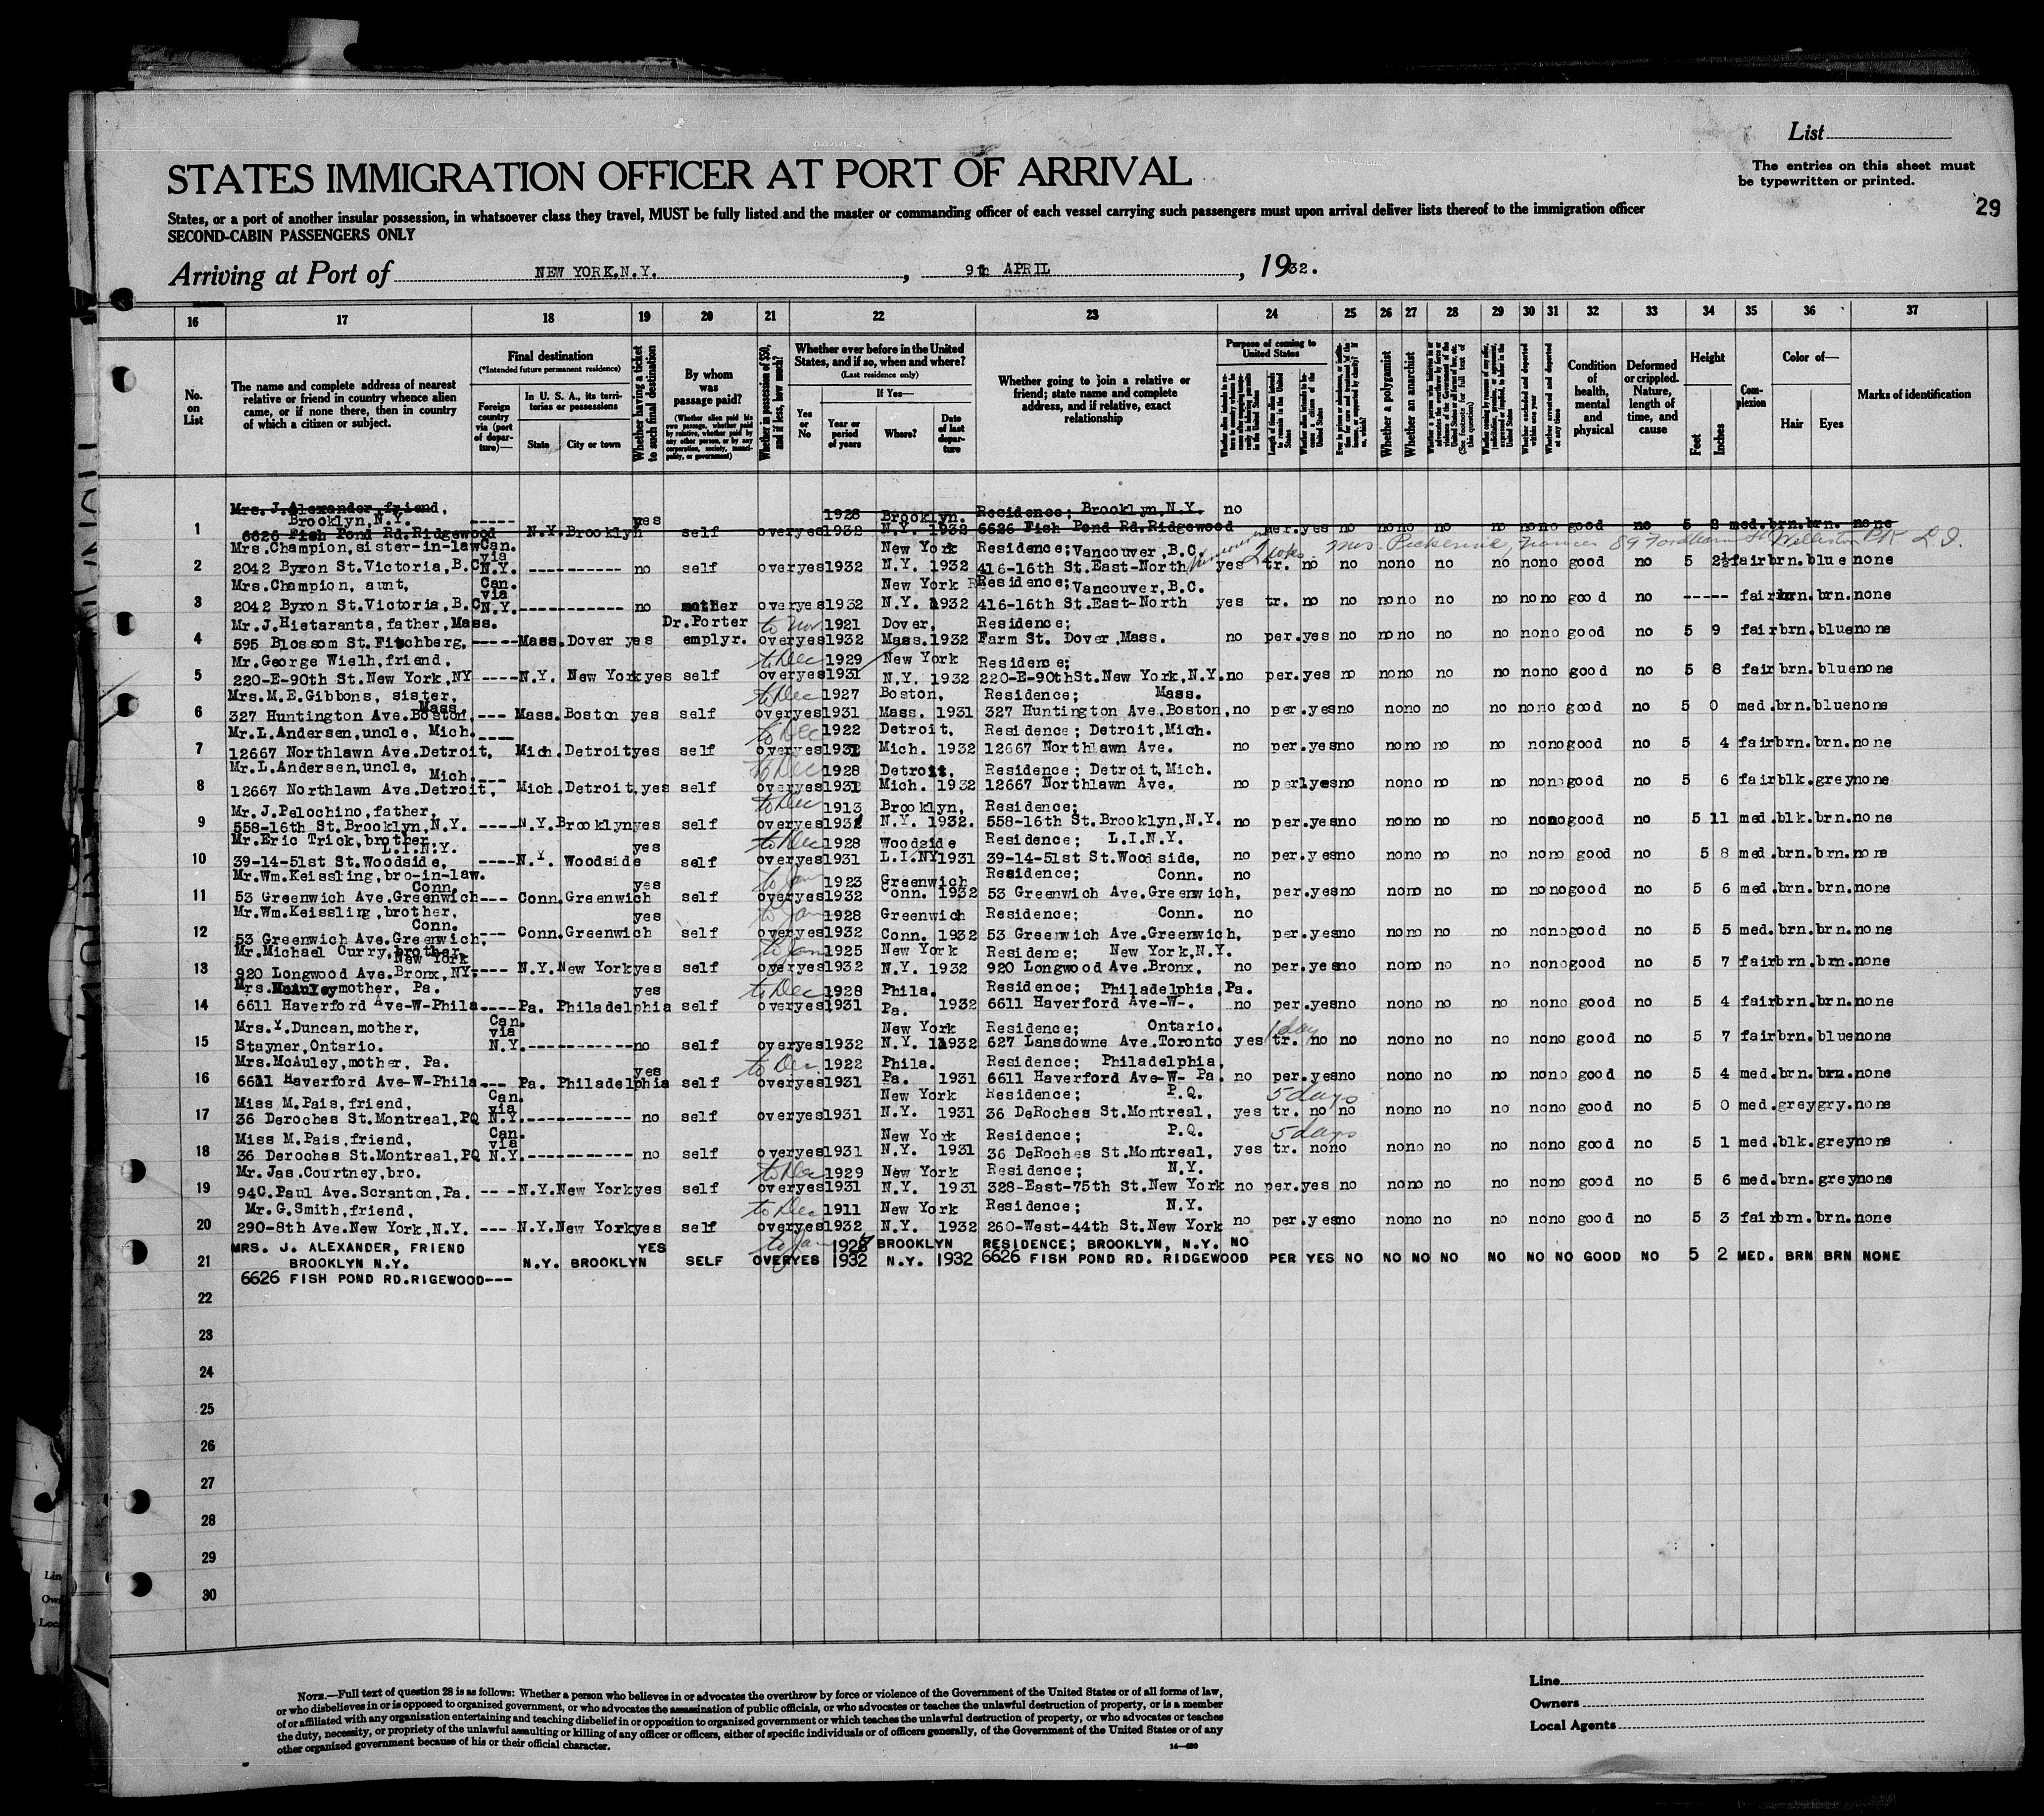 List
STATES IMMIGRATION OFFICER AT PORT OF ARRIVAL
The entries on this sheet must
be typewritten or printed.
States, or a port of another insular possession, in whatsoever class they travel, MUST be fully listed and the master or commanding officer of each vessel carrying such passengers must upon arrival deliver lists thereof to the immigration officer
29
SECOND-CABIN PASSENGERS ONLY
Arriving at Port of NEW YORK.N.Y. , 9th APRIL , 1932.
16 17 18 19 20 21 22 23 24 25 26 27 28 29 30 31 32 33 34 35 36 37
No. on List
The name and complete address of nearest relative or friend in country whence alien came, or if none there, then in country of which a citizen or subject.
Final destination
(*Intended future permanent residence)
Foreign country via (port of departure)—
In U. S. A., its territories or possessions
State City or town
Whether having a ticket to such final destination
By whom was passage paid?
(Whether alien paid his own passage, whether paid by relative, whether paid by any other person, or by any corporation, society, municipality, or government)
Whether in possession of $50, and if less, how much?
Whether ever before in the United States, and if so, when and where?
(Last residence only)
Yes or No
If Yes—
Year or period of years
Where?
Date of last departure
Whether going to join a relative or friend; state name and complete address, and if relative, exact relationship
Purpose of coming to United States
Length of time alien intends to remain in the United States
Whether alien intends to become a citizen of the United States
Whether a polygamist
Whether an anarchist
Whether arrested and deported at any time
Condition of health, mental and physical
Deformed or crippled. Nature, length of time, and cause
Height
Feet Inches
Complexion
Color of—
Hair Eyes
Marks of identification
Mrs.J.Alexander,friend, 1928 Brooklyn. Residence; Brooklyn,N.Y. no
Brooklyn,N.Y. ----- yes
1 6626 Fish Pond Rd.Ridgewood N.Y.Brooklyn self over yes 1932 N.Y. 1932 6626 Fish Pond Rd.Ridgewood per.yes no no no no no no no good no 5 2 med.brn.brn. none
Mrs.Champion,sister-in-law Can. via New York Residence; Vancouver,B.C. 2 wks. Mrs. Pickering, 89 Fordham St. Williston Pk L.I.
2 2042 Byron St.Victoria,B.C N.Y. ---------- no self over yes 1932 N.Y. 1932 416-16th St.East-North yes tr. no no no no no no no no good no 5 2½ fair brn.blue none
Mrs.Champion, aunt, Can. via New York Residence; Vancouver,B.C.
3 2042 Byron St.Victoria,B.C N.Y.----------- no mother over yes 1932 N.Y. 1932 416-16th St.East-North yes tr. no no no no no no no no good no ----- fair brn. brn. none
Mr.J.Hietaranta,father,Mass. Dr.Porter to Nov. 1921 Dover, Residence;
4 595 Blossom St.Fitchberg, -----Mass.Dover yes emplyr. over yes 1932 Mass.1932 Farm St. Dover,Mass. no per.yes no no no no no no no good no 5 9 fair brn.blue none
Mr.George Wielh,friend, to Dec 1929 New York Residence;
5 220-E-90th St.New York,NY ----N.Y. New York yes self over yes 1931 N.Y. 1932 220-E-90thSt.New York,N.Y. no per.yes no no no no no no no good no 5 8 fair brn.blue none
Mrs.M.E.Gibbons, sister, Mass. to Dec 1927 Boston, Residence; Mass.
6 327 Huntington Ave.Boston, --- Mass.Boston yes self over yes 1931 Mass. 1931 327 Huntington Ave.Boston, no per.yes no no no no no no no good no 5 0 med.brn.blue none
Mr.L.Andersen,uncle, Mich. ---- to Dec 1922 Detroit, Residence; Detroit,Mich.
7 12667 Northlawn Ave.Detroit, Mich.Detroit yes self over yes 1931 Mich. 1932 12667 Northlawn Ave. no per.yes no no no no no no no good 5 4 fair brn. brn. none
Mr.L.Andersen,uncle, Mich.--- to Dec 1928 Detroit, Residence; Detroit,Mich.
8 12667 Northlawn Ave.Detroit, Mich.Detroit.yes self over yes 1931 Mich. 1932 12667 Northlawn Ave. no per.yes no no no no no no no good no 5 6 fair blk.grey none
Mr.J.Pelochino,father, to Dec 1913 Brooklyn, Residence;
9 558-16th St.Brooklyn,N.Y. ----N.Y.Brooklyn yes self over yes 1931 N.Y. 1932. 558-16th St.Brooklyn,N.Y. no per.yes no no no no no no good no 5 11 med.blk.brn.none
Mr.Eric Trick,brother, L.I.N.Y. yes to Dec 1928 Woodside Residence; L.I.N.Y.
10 39-14-51st St.Woodside, ----N.Y. Woodside self over yes 1931 L.I.NY 1931 39-14-51st St.Woodside, no per.yes no no no no no no no good no 5 8 med.brn.brn.none
Mr.Wm.Keissling,bro-in-law. Conn. yes to Jan 1923 Greenwich Residence; Conn. no
11 53 Greenwich Ave.Greenwich--- Conn.Greenwich self over yes 1932 Conn. 1932 53 Greenwich Ave.Greenwich, per.yes no no no no no no no good no 5 6 med.brn.brn.none
Mr.Wm.Keissling,brother, Conn. yes to Jan 1928 Greenwich Residence; Conn. no
12 53 Greenwich Ave.Greenwich, --- Conn.Greenwich self over yes 1932 Conn. 1932 53 Greenwich Ave.Greenwich, per.yes no no no no no no no good no 5 5 med.brn.brn.none
Mr.Michael Curry,brother, New York to Jan 1925 New York Residence; New York,N.Y.
13 920 Longwood Ave.Bronx,NY---- N.Y.New York yes self over yes 1932 N.Y. 1932 920 Longwood Ave.Bronx, no per.yes no no no no no no no good no 5 7 fair brn.brn.none
Mrs.McAuley mother, Pa. yes to Dec 1928 Phila. Residence; Philadelphia,Pa.
14 6611 Haverford Ave-W-Phila----Pa. Philadelphia self over yes 1931 Pa. 1932 6611 Haverford Ave-W-. no per.yes no no no no no no no good no 5 4 fair brn.brn.none
Mrs.Y.Duncan,mother, Can. via New York Residence; Ontario. 1 day
15 Stayner,Ontario. N.Y.-----------no self over yes 1932 N.Y. 1932 627 Lansdowne Ave.Toronto yes tr. no no no no no no no no good no 5 7 fair brn.blue none
Mrs.McAuley,mother, Pa. yes to Dec. 1922 Phila. Residence; Philadelphia,
16 6611 Haverford Ave-W-Phila--- Pa. Philadelphia self over yes 1931 Pa. 1931 6611 Haverford Ave-W- Pa. no per.yes no no no no no no no good no 5 4 med.brn.brn.none
Miss M.Pais,friend, Can. via New York Residence; P.Q. 5 days
17 36 Deroches St.Montreal,PQ N.Y.----------- no self over yes 1931 N.Y. 1931 36 DeRoches St.Montreal, yes tr. no no no no no no no no good no 5 0 med.grey gry.none
Miss M.Pais,friend, Can. via New York Residence; P.Q. 5 days
18 36 Deroches St.Montreal,PQ N.Y.----------- no self over yes 1931 N.Y. 1931 36 DeRoches St.Montreal, yes tr. no no no no no no no no good no 5 1 med.blk.grey none
Mr.Jas.Courtney,bro. to Dec 1929 New York Residence; N.Y.
19 940.Paul Ave.Scranton,Pa. ----N.Y.New York yes self over yes 1931 N.Y. 1931 328-East-75th St.New York no per.yes no no no no no no no good no 5 6 med.brn.grey none
Mr.G.Smith,friend, to Dec 1911 New York Residence; N.Y.
20 290-8th Ave.New York,N.Y. --- N.Y.New York yes self over yes 1932 N.Y. 1932 260-West-44th St.New York no per.yes no no no no no no no good no 5 3 fair brn.brn.none
MRS. J. ALEXANDER, FRIEND YES to Jan 1928 BROOKLYN RESIDENCE; BROOKLYN, N.Y. NO
21 BROOKLYN N.Y. N.Y. BROOKLYN SELF OVER YES 1932 N.Y. 1932 6626 FISH POND RD. RIDGEWOOD PER YES NO NO NO NO NO NO NO GOOD NO 5 2 MED. BRN BRN NONE
6626 FISH POND RD.RIGEWOOD---
22
23
24
25
26
27
28
29
30
NOTE.—Full text of question 28 is as follows: Whether a person who believes in or advocates the overthrow by force or violence of the Government of the United States or of all forms of law,
or who disbelieves in or is opposed to organized government, or who advocates the assassination of public officials, or who advocates or teaches the unlawful destruction of property, or is a member
of or affiliated with any organization entertaining and teaching disbelief in or opposition to organized government or which teaches the unlawful destruction of property, or who advocates or teaches
the duty, necessity, or propriety of the unlawful assaulting or killing of any officer or officers, either of specific individuals or of officers generally, of the Government of the United States or of any
other organized government because of his or their official character.
Line
Owners
Local Agents